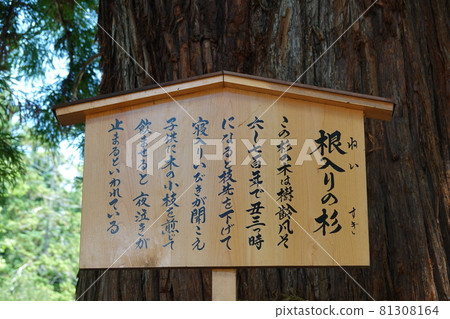 根入りの杉
ねい すぎ
この杉の木は樹齢凡そ
六〜七百年で丑三つ時
になると枝先を下げて
寝入りいびきが聞こえ
子供に木の小枝を煎じて
飲ませると夜泣きが
止まるといわれている
PIXTA
81308164